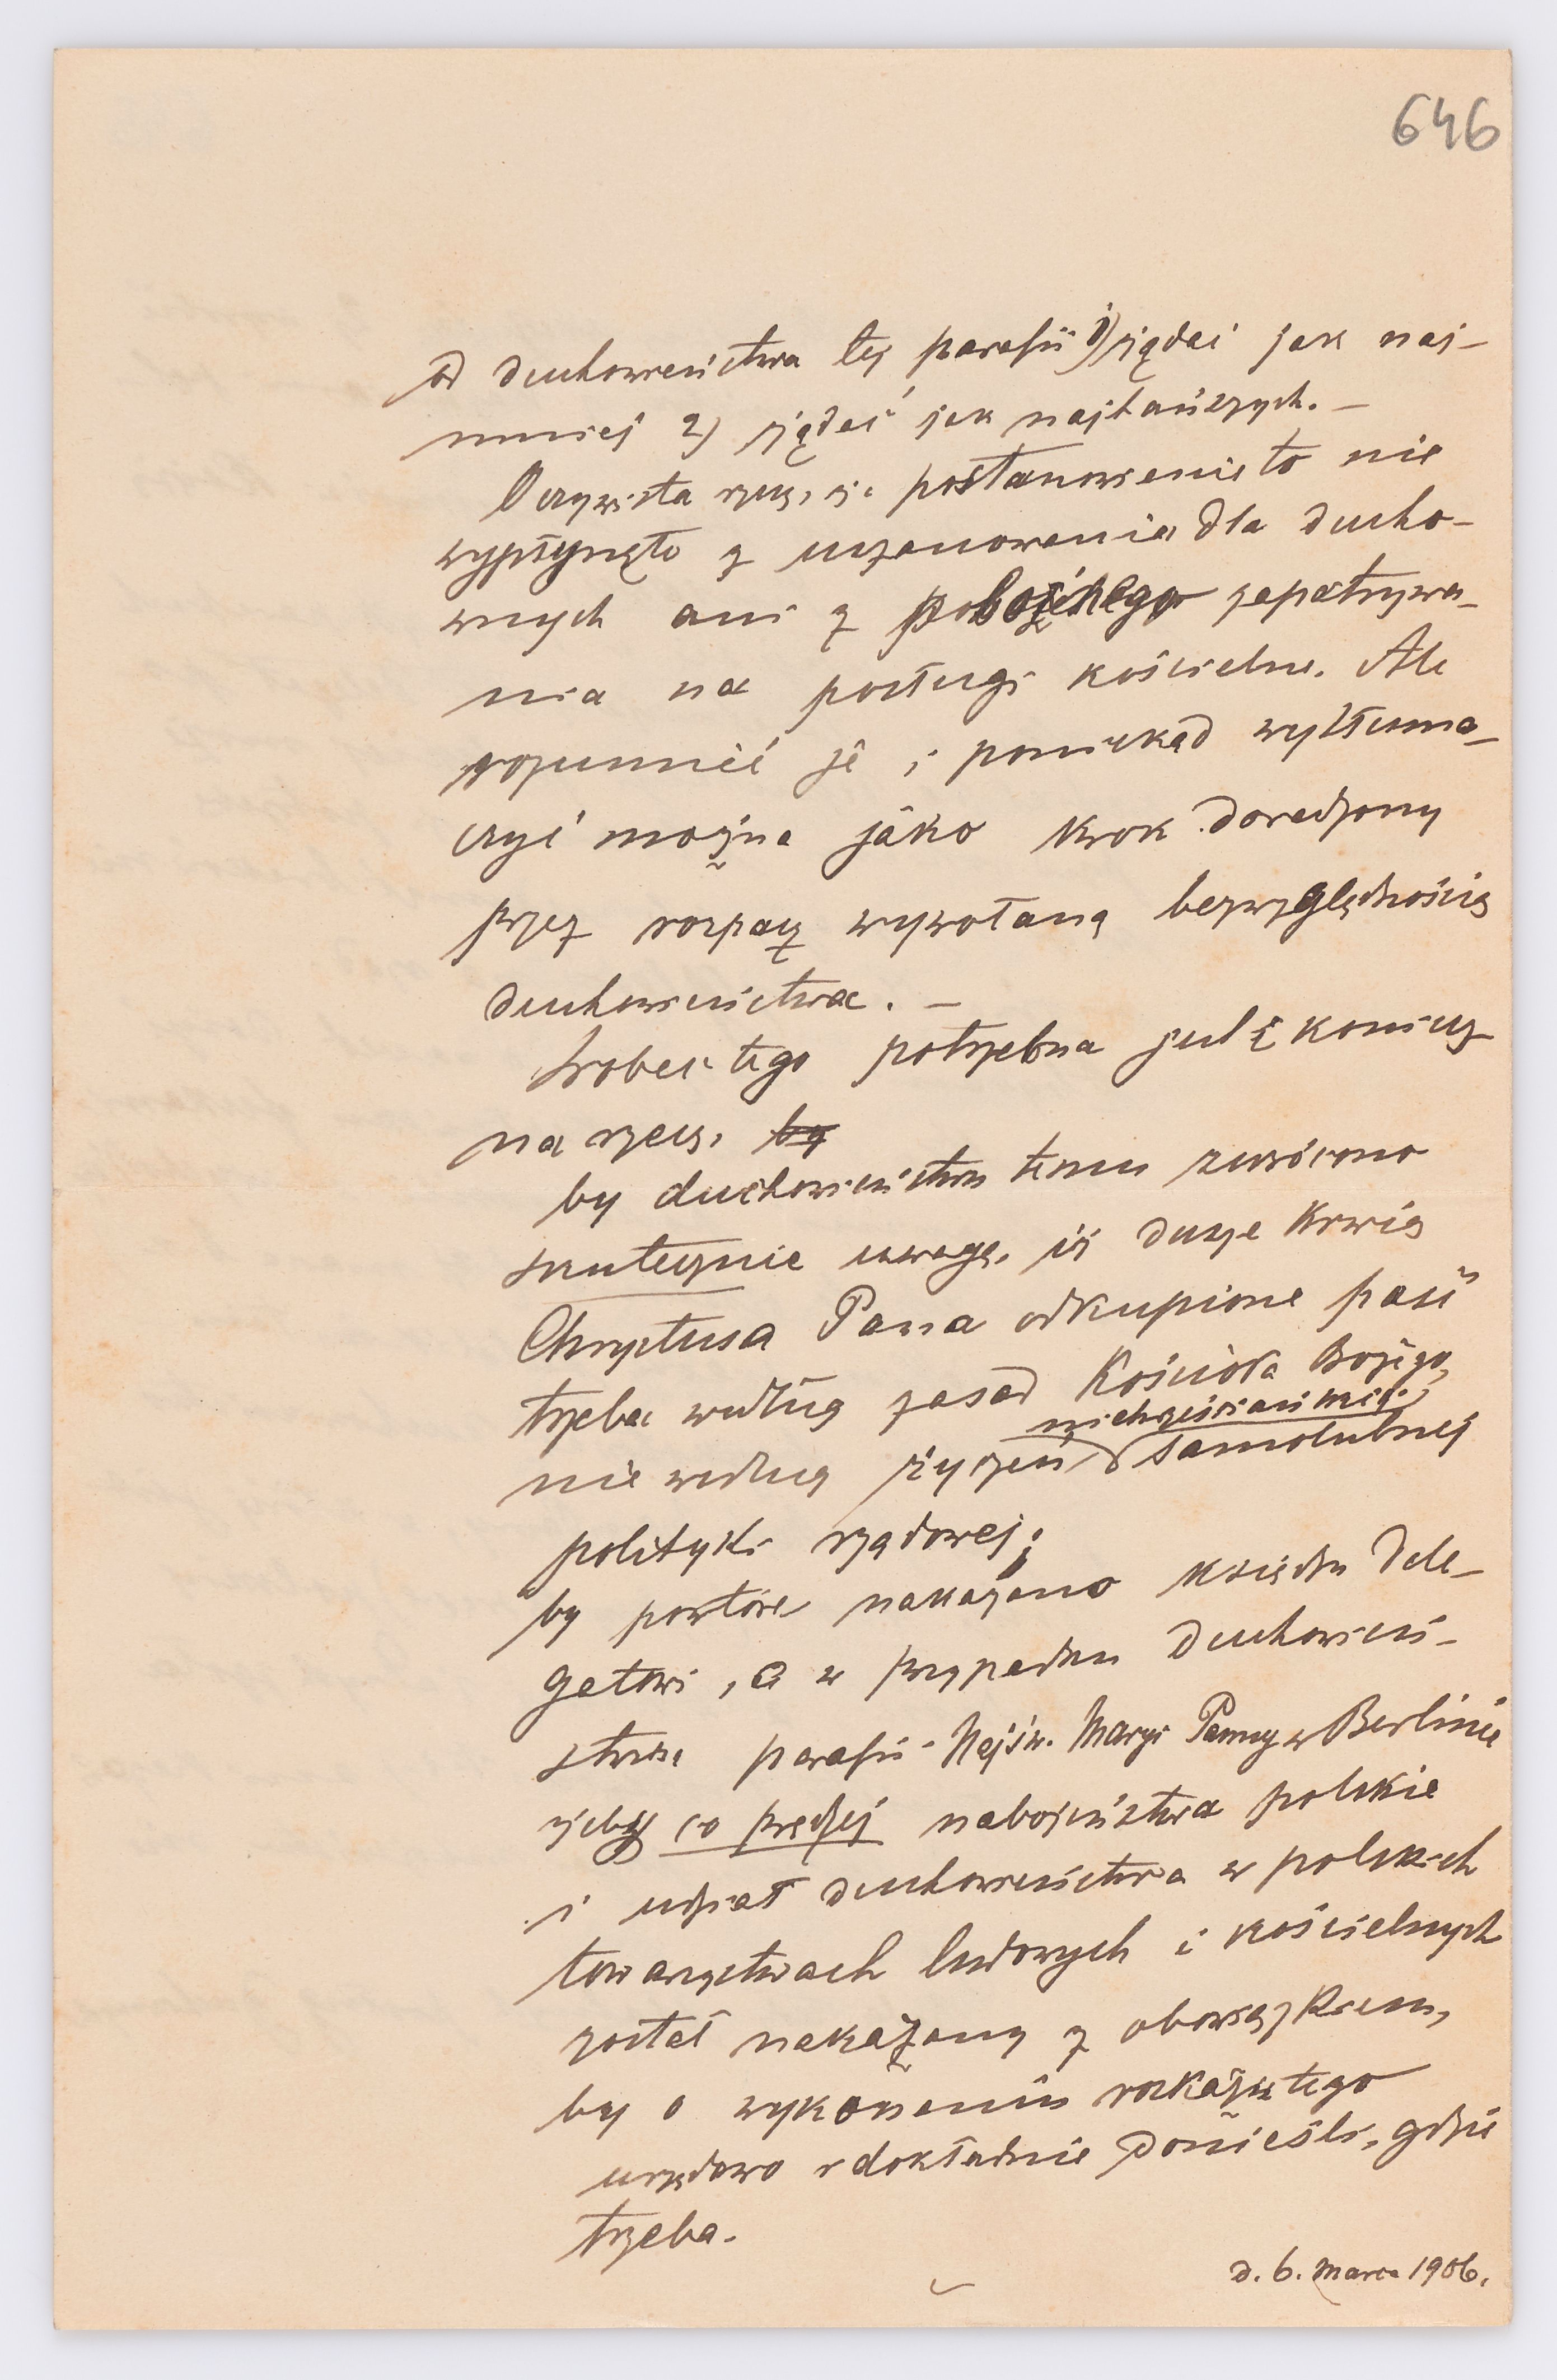 646
od duchowieństwa tej parafii 1) żądać jak naj-
mniej 2) żądać jak najtańszych. –
Oczywista rzecz, że postanowienie to nie
wypłynęło z uszanowania dla ducho-
wnych ani z pobożnego zapatrywa-
nia na posługi kościelne. Ale
rozumieć je i poniekąd wytłuma-
czyć można jako krok doradzony
przez rozpacz wywołaną bezwzględnością
duchowieństwa. –
Wobec tego potrzebna jest i koniecz-
na rzecz, by
by duchowieństwu temu zwrócono
skutecznie uwagę, iż dusze Krwią
Chrystusa Pana odkupione paść
trzeba według zasad Kościoła Bożego,
niechrześciańskiej
nie według życzeń samolubnej
polityki rządowej;
by powtóre nakazano księdzu Dele-
gatowi, a w przypadku Duchowień-
stwu parafii Najśw. Maryi Panny w Berlinie
żeby co prędzej nabożeństwa polskie
i udział duchowieństwa w polskich
towarzystwach ludowych i kościelnych
został nakazany z obowiązkiem,
by o wykonaniu rozkazu tego
urzędowo i dokładnie donieśli, gdzie
trzeba.
d. 6. Marca 1906.